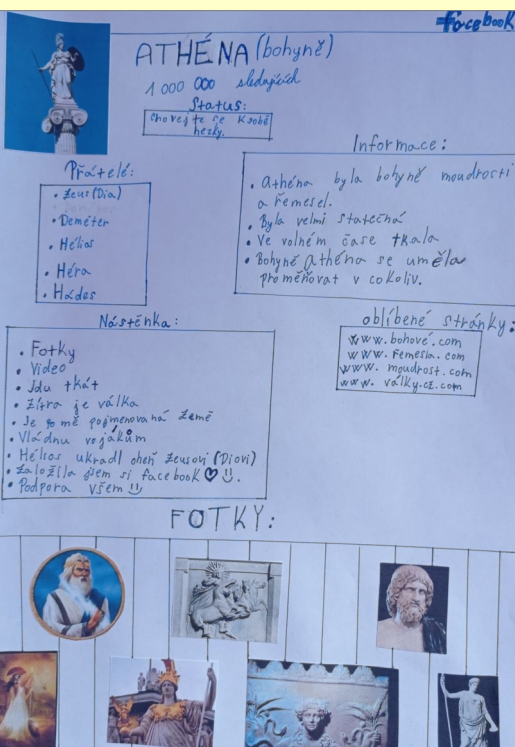 facebook
ATHÉNA (bohyně)
1 000 000 sledujících
Status:
Chovejte se k sobě
hezky.
Přátelé:
• Zeus (Dia)
• Deméter
• Hélios
• Héra
• Hádes
Informace:
• Athéna byla bohyně moudrosti
a řemesel.
• Byla velmi statečná
• Ve volném čase tkala
• Bohyně Athéna se uměla
proměňovat v cokoliv.
Nástěnka:
• Fotky
• Video
• Jdu tkát
• Zítra je válka
• Je po mě pojmenovaná země
• Vládnu vojákům
• Hélios ukradl oheň Zeusovi (Diovi)
• Založila jsem si facebook ♡ ü.
• Podpora všem ü
oblíbené stránky:
www.bohové.com
www.řemesla.com
www.moudrost.com
www.války.cz.com
FOTKY: